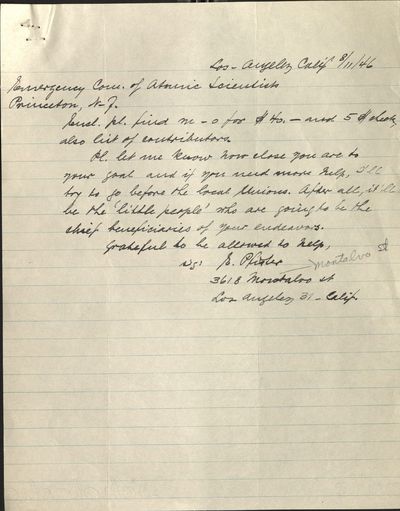 Los-Angeles Calif 8/11/46
Emergency Com. of Atomic Scientists
Princeton, N-J.
Encl. pl. find m-o for $40.- and 5 $ check,
also list of contributors.
Pl. let me know how close you are to
your goal and if you need more help, I'll
try to go before the local Unions. After all, it'll
be the 'little people' who are going to be the
chief beneficiaries of your endeavors.
Grateful to be allowed to help,
E. Pfister
Montalvo St
3618 Montalvo st
Los Angeles 31 - Calif.